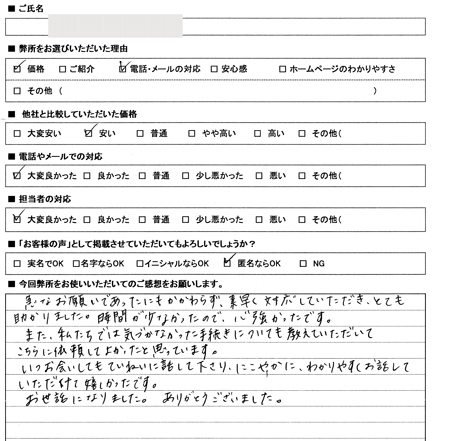 ■ ご氏名
■ 弊所をお選びいただいた理由
☑ 価格 □ ご紹介 ☑ 電話・メールの対応 □ 安心感 □ ホームページのわかりやすさ
□ その他 ( )
■ 他社と比較していただいた価格
□ 大変安い ☑ 安い □ 普通 □ やや高い □ 高い □ その他(
■ 電話やメールでの対応
☑ 大変良かった □ 良かった □ 普通 □ 少し悪かった □ 悪い □ その他(
■ 担当者の対応
☑ 大変良かった □ 良かった □ 普通 □ 少し悪かった □ 悪い □ その他(
■ 「お客様の声」として掲載させていただいてもよろしいでしょうか?
□ 実名でOK □ 名字ならOK □ イニシャルならOK ☑ 匿名ならOK □ NG
■ 今回弊所をお使いいただいてのご感想をお願いします。
急なお願いであったにもかかわらず、素早く対応していただき、とても
助かりました。時間が少なかったので、心強かったです。
また、私たちでは気づかなかった手続きについても教えていただいて
こちらに依頼してよかったと思っています。
いつお会いしてもていねいに話して下さり、にこやかに、わかりやすくお話して
いただけて嬉しかったです。
お世話になりました。 ありがとうございました。